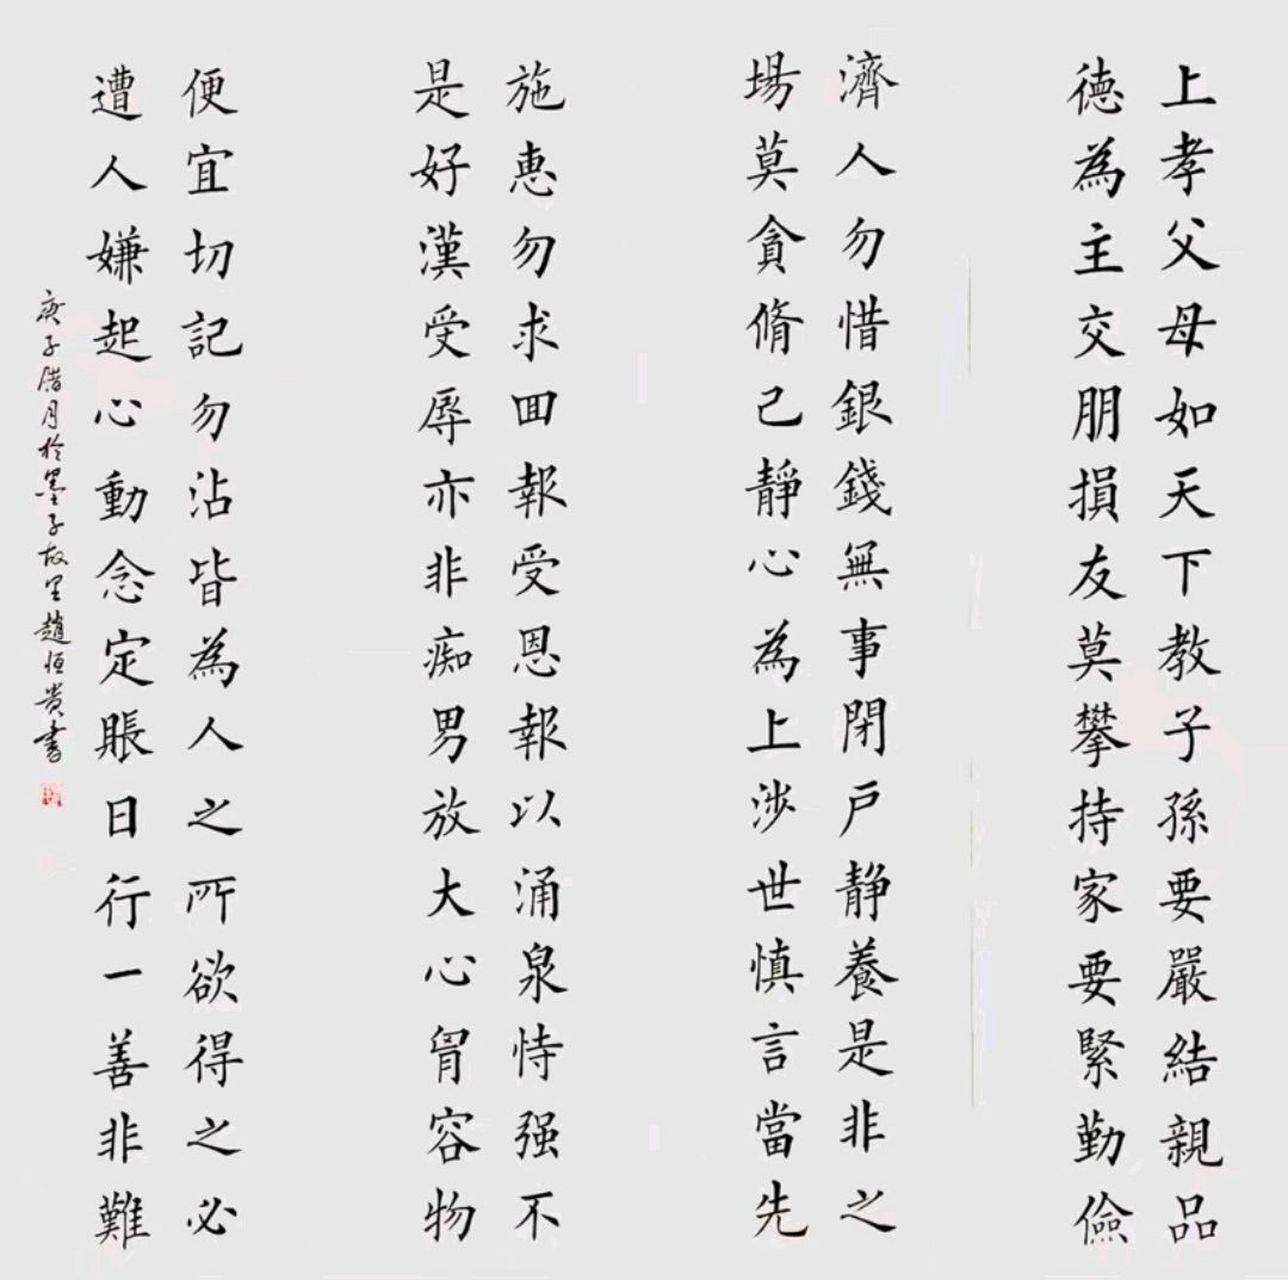 上孝父母如天下教子孫要嚴結親品
德為主交朋損友莫攀持家要緊勤儉
濟人勿惜銀錢無事閉戶靜養是非之
場莫貪脩己靜心為上涉世慎言當先
施惠勿求回報受恩報以涌泉恃强不
是好漢受辱亦非痴男放大心胷容物
便宜切記勿沾皆為人之所欲得之必
遭人嫌起心動念定賬日行一善非難
庚子腊月於墨子故里趙恒贵書